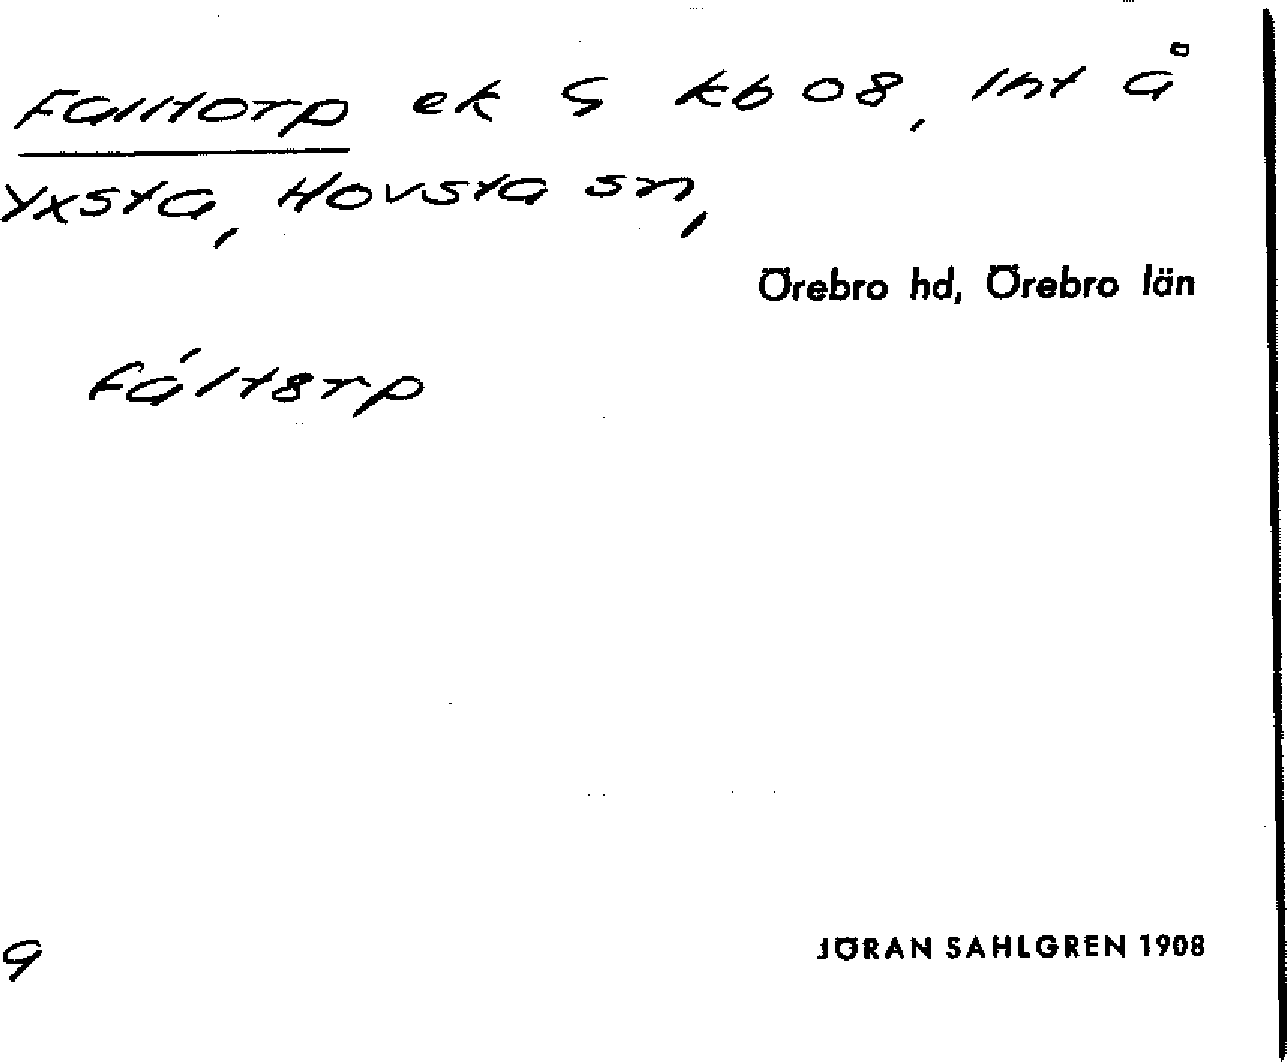 Falltorp ek G kb 08, Int å
Yxsta, Hovsta sn,
Örebro hd, Örebro län
fált8rp
9
JÖRAN SAHLGREN 1908